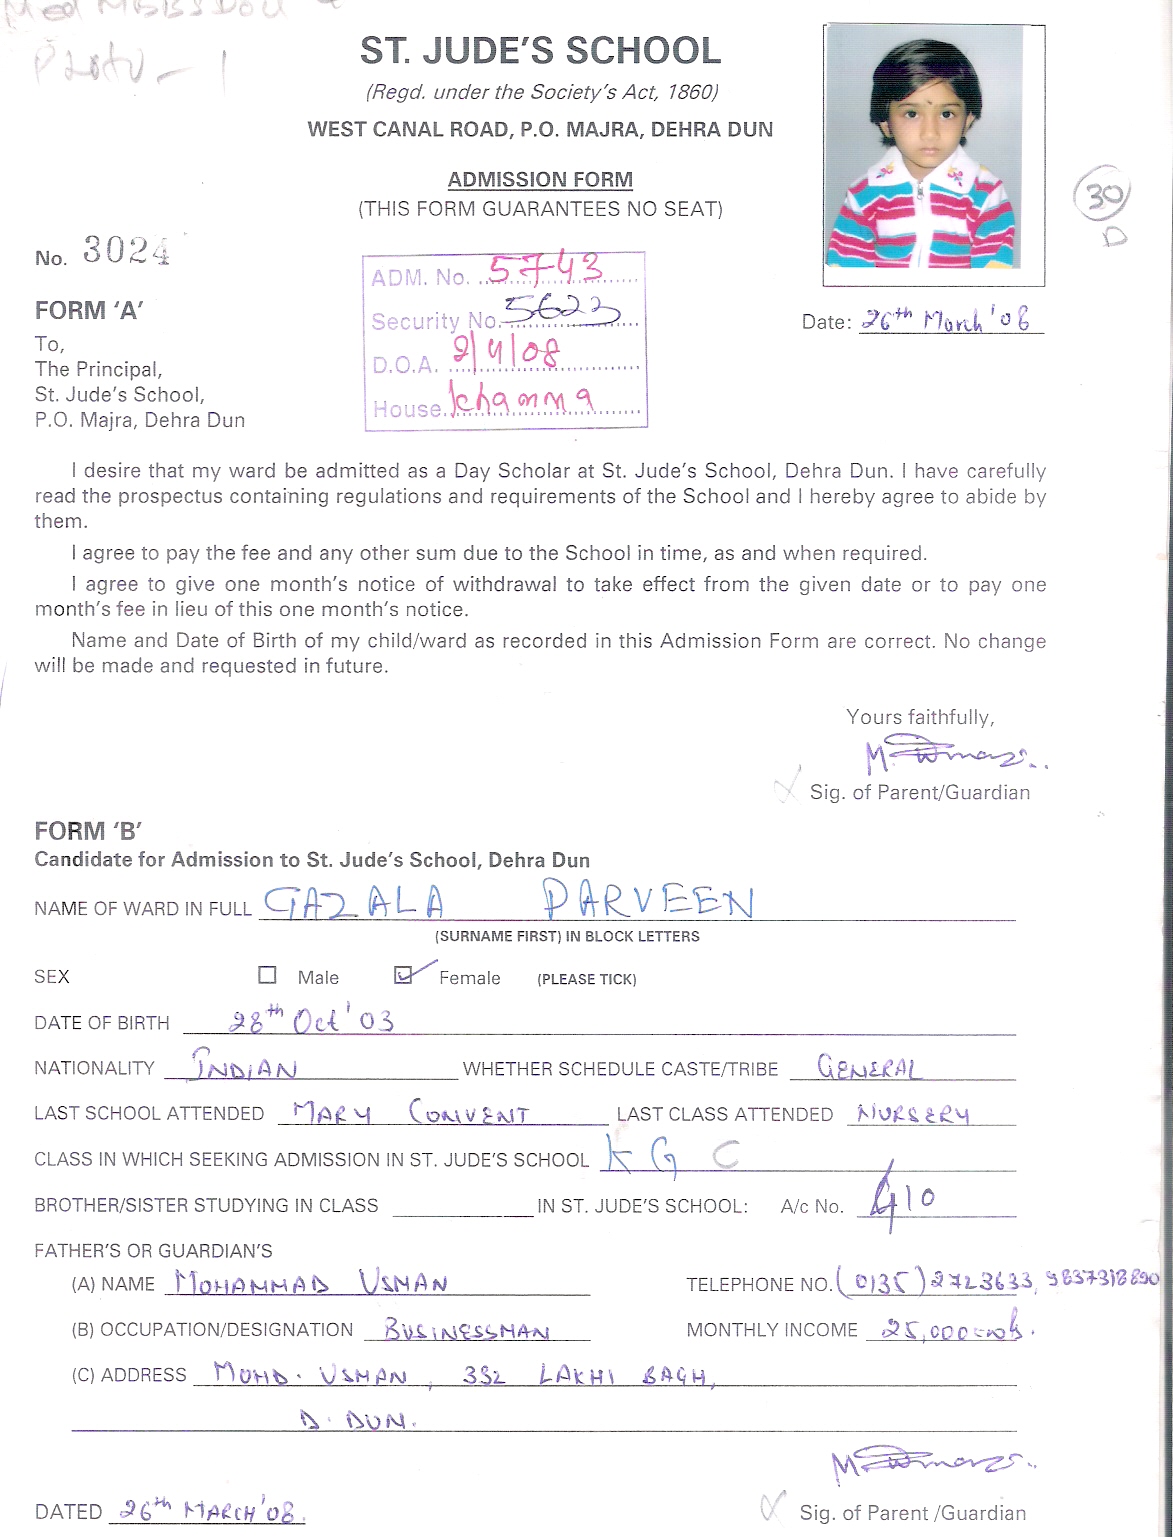 ST. JUDE'S SCHOOL
(Regd. under the Society's Act, 1860)
WEST CANAL ROAD, P.O. MAJRA, DEHRA DUN
ADMISSION FORM
(THIS FORM GUARANTEES NO SEAT)
30
D
No. 3024
ADM. No. 5743
Security No. 5623
D.O.A. 2/4/08
House
Date: 26th March '08
FORM 'A'
To,
The Principal,
St. Jude's School,
P.O. Majra, Dehra Dun
I desire that my ward be admitted as a Day Scholar at St. Jude's School, Dehra Dun. I have carefully
read the prospectus containing regulations and requirements of the School and I hereby agree to abide by
them.
I agree to pay the fee and any other sum due to the School in time, as and when required.
I agree to give one month's notice of withdrawal to take effect from the given date or to pay one
month's fee in lieu of this one month's notice.
Name and Date of Birth of my child/ward as recorded in this Admission Form are correct. No change
will be made and requested in future.
Yours faithfully,
Sig. of Parent/Guardian
FORM 'B'
Candidate for Admission to St. Jude's School, Dehra Dun
NAME OF WARD IN FULL GAZALA PARVEEN
(SURNAME FIRST) IN BLOCK LETTERS
SEX Male Female (PLEASE TICK)
DATE OF BIRTH 28th Oct '03
NATIONALITY INDIAN WHETHER SCHEDULE CASTE/TRIBE GENERAL
LAST SCHOOL ATTENDED MARY CONVENT LAST CLASS ATTENDED NURSERY
CLASS IN WHICH SEEKING ADMISSION IN ST. JUDE'S SCHOOL KG C
BROTHER/SISTER STUDYING IN CLASS IN ST. JUDE'S SCHOOL: A/c No. G10
FATHER'S OR GUARDIAN'S
(A) NAME MOHAMMAD USMAN TELEPHONE NO. (0135) 2723633, 9837318890
(B) OCCUPATION/DESIGNATION BUSINESSMAN MONTHLY INCOME 25,000
(C) ADDRESS MOHD. USMAN, 332 LAKHI BAGH,
D. DUN.
DATED 26th MARCH '08.
Sig. of Parent /Guardian